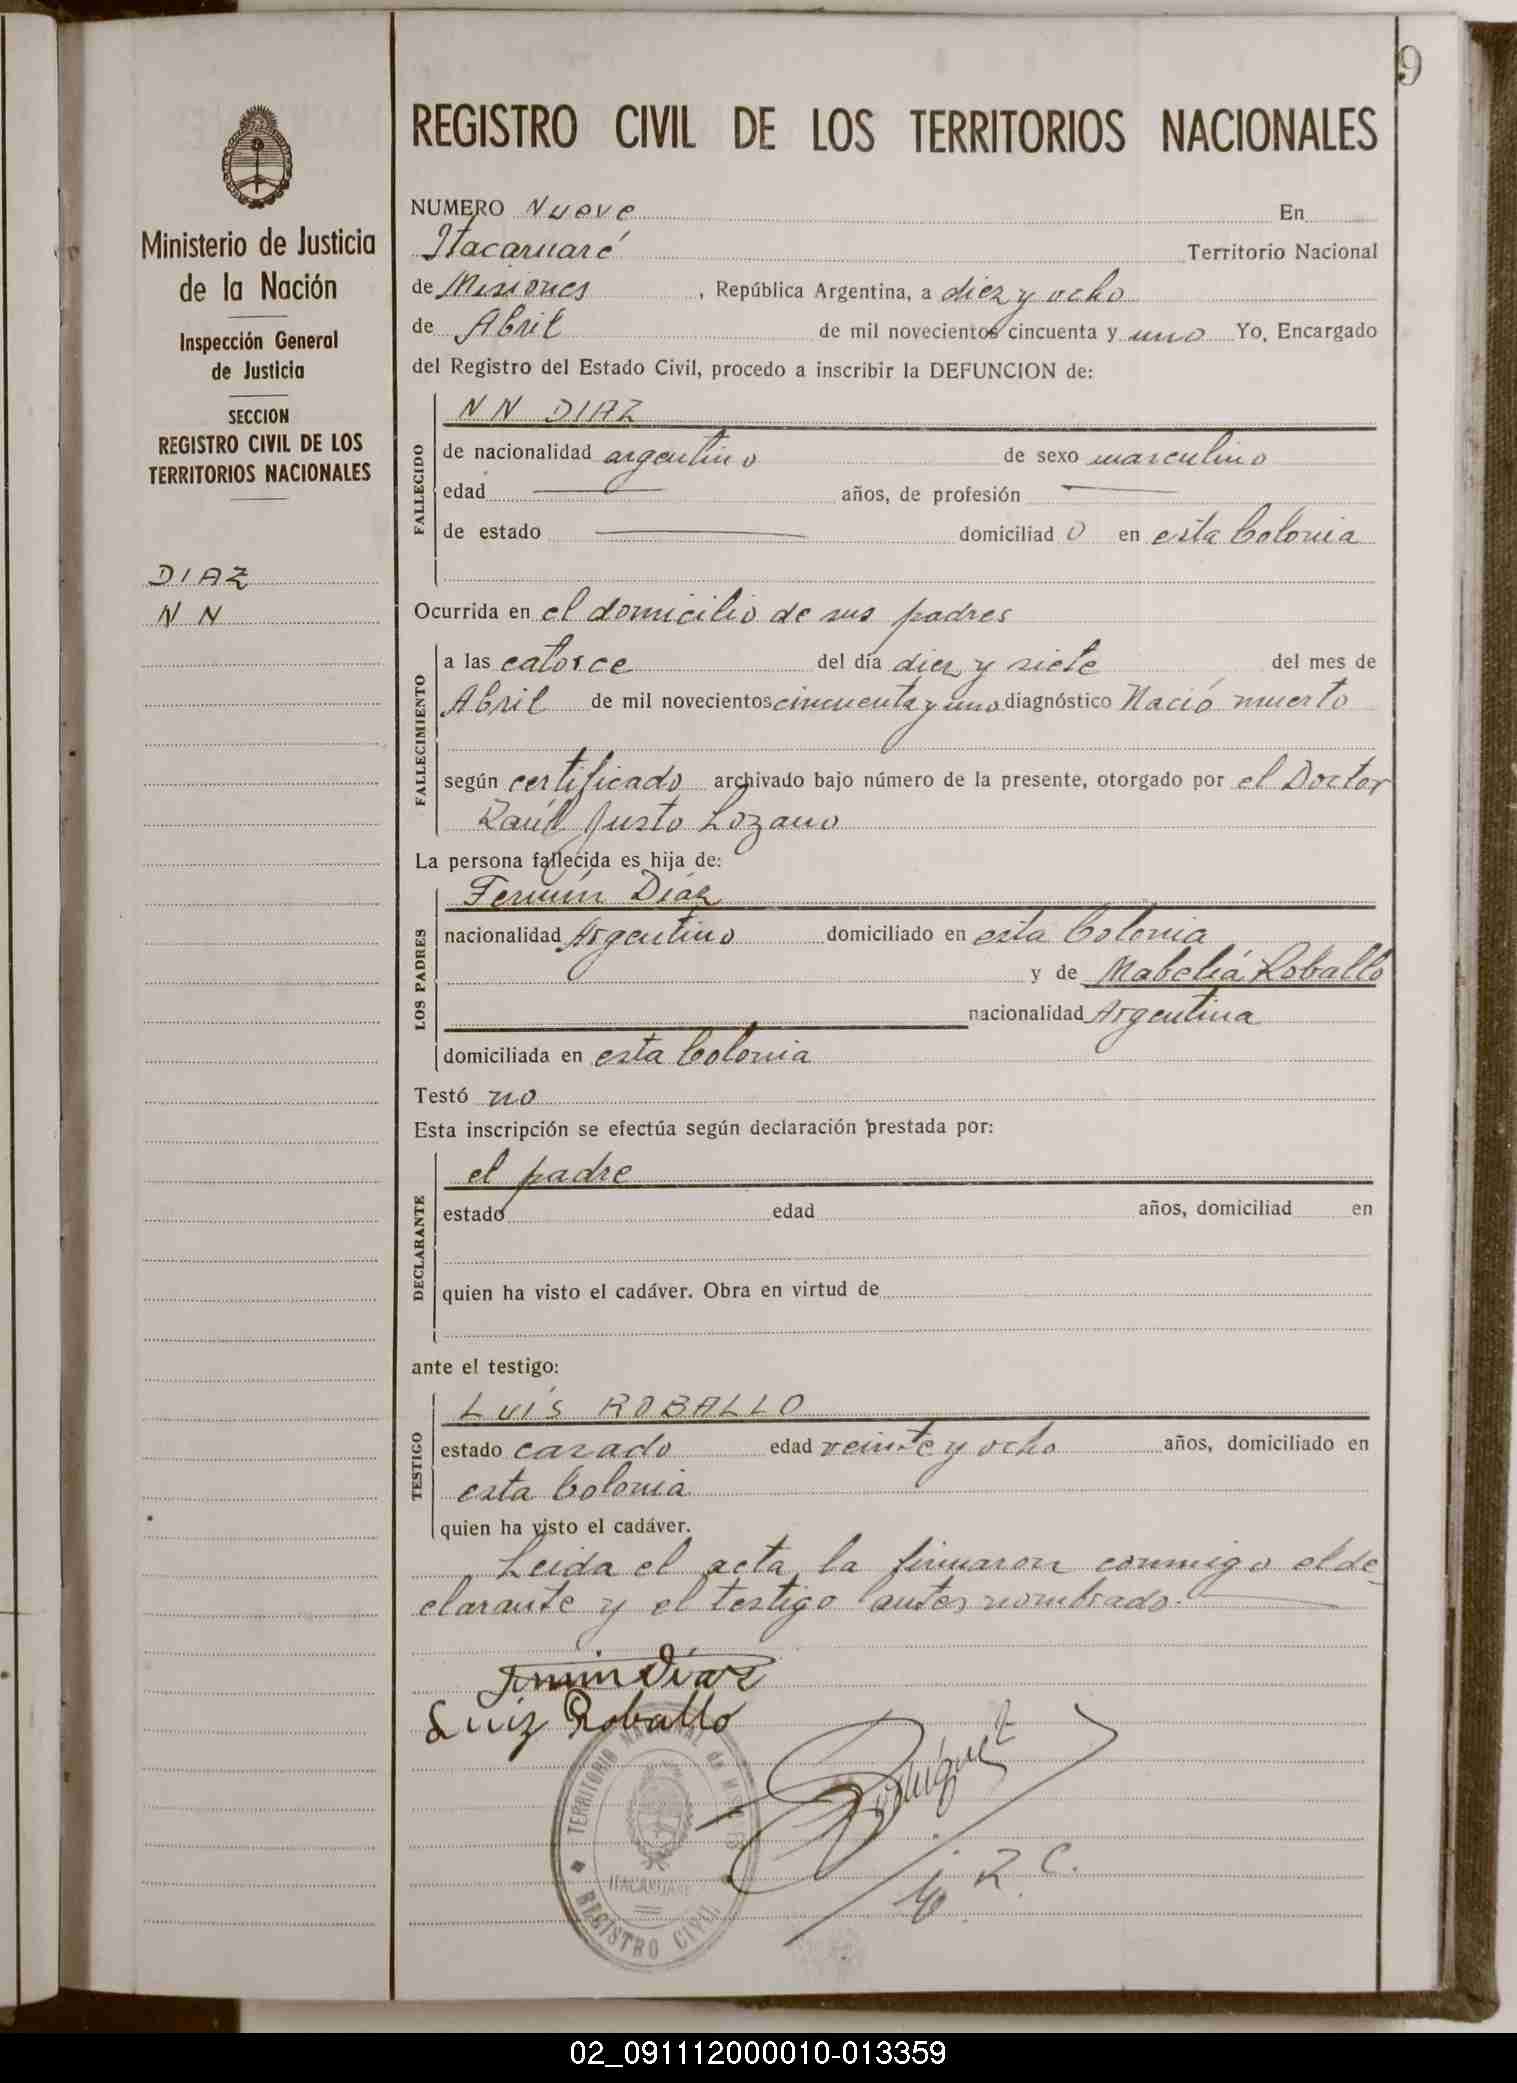 9
REGISTRO CIVIL DE LOS TERRITORIOS NACIONALES
Ministerio de Justicia
de la Nación
Inspección General
de Justicia
SECCION
REGISTRO CIVIL DE LOS
TERRITORIOS NACIONALES
DIAZ
N N
NUMERO Nueve En
Itacaruaré Territorio Nacional
de Misiones, República Argentina, a diez y ocho
de Abril de mil novecientos cincuenta y uno Yo, Encargado
del Registro del Estado Civil, procedo a inscribir la DEFUNCION de:
FALLECIDO
N N DIAZ
de nacionalidad argentino de sexo masculino
edad años, de profesión
de estado domiciliad o en esta Colonia
Ocurrida en el domicilio de sus padres
FALLECIMIENTO
a las catorce del día diez y siete del mes de
Abril de mil novecientos cincuenta y uno diagnóstico Nació muerto
según certificado archivado bajo número de la presente, otorgado por el Doctor
Raúl Justo Lozano
La persona fallecida es hija de:
LOS PADRES
Fermín Díaz
nacionalidad Argentino domiciliado en esta Colonia
y de Mabeliá Roballo
nacionalidad Argentina
domiciliada en esta Colonia
Testó no
Esta inscripción se efectúa según declaración prestada por:
DECLARANTE
el padre
estado edad años, domiciliad en
quien ha visto el cadáver. Obra en virtud de
ante el testigo:
TESTIGO
LUÍS ROBALLO
estado casado edad veinte y ocho años, domiciliado en
esta Colonia
quien ha visto el cadáver.
Leida el acta, la firmaron conmigo el de-
clarante y el testigo antes nombrado.
Fermin Díaz
Luiz Roballo
TERRITORIO NACIONAL de MISIONES
ITACARUARE
REGISTRO CIVIL
02_091112000010-013359